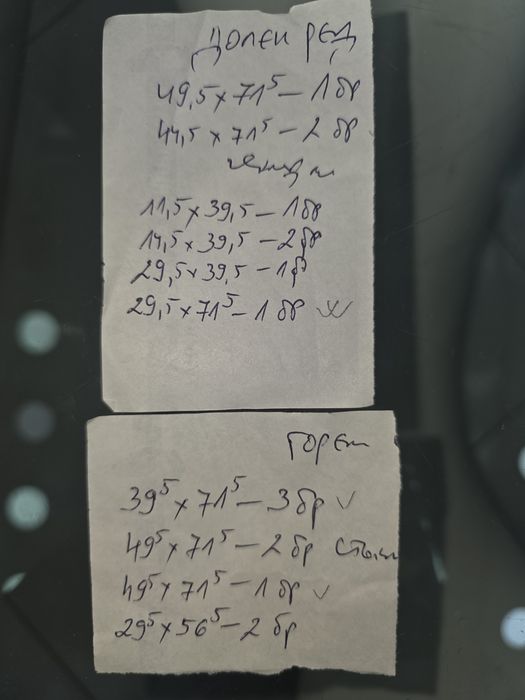 ДОЛЕН РЕД
49,5 x 71⁵ – 1 бр
44,5 x 71⁵ – 2 бр
11,5 x 39,5 – 1бр
14,5 x 39,5 – 2бр
29,5 x 39,5 – 1б
29,5 x 71⁵ – 1 бр
ГОРЕН
39⁵ x 71⁵ – 3 бр ✓
49⁵ x 71⁵ – 2 бр
49⁵ x 71⁵ – 1 бр ✓
29⁵ x 56⁵ – 2 бр